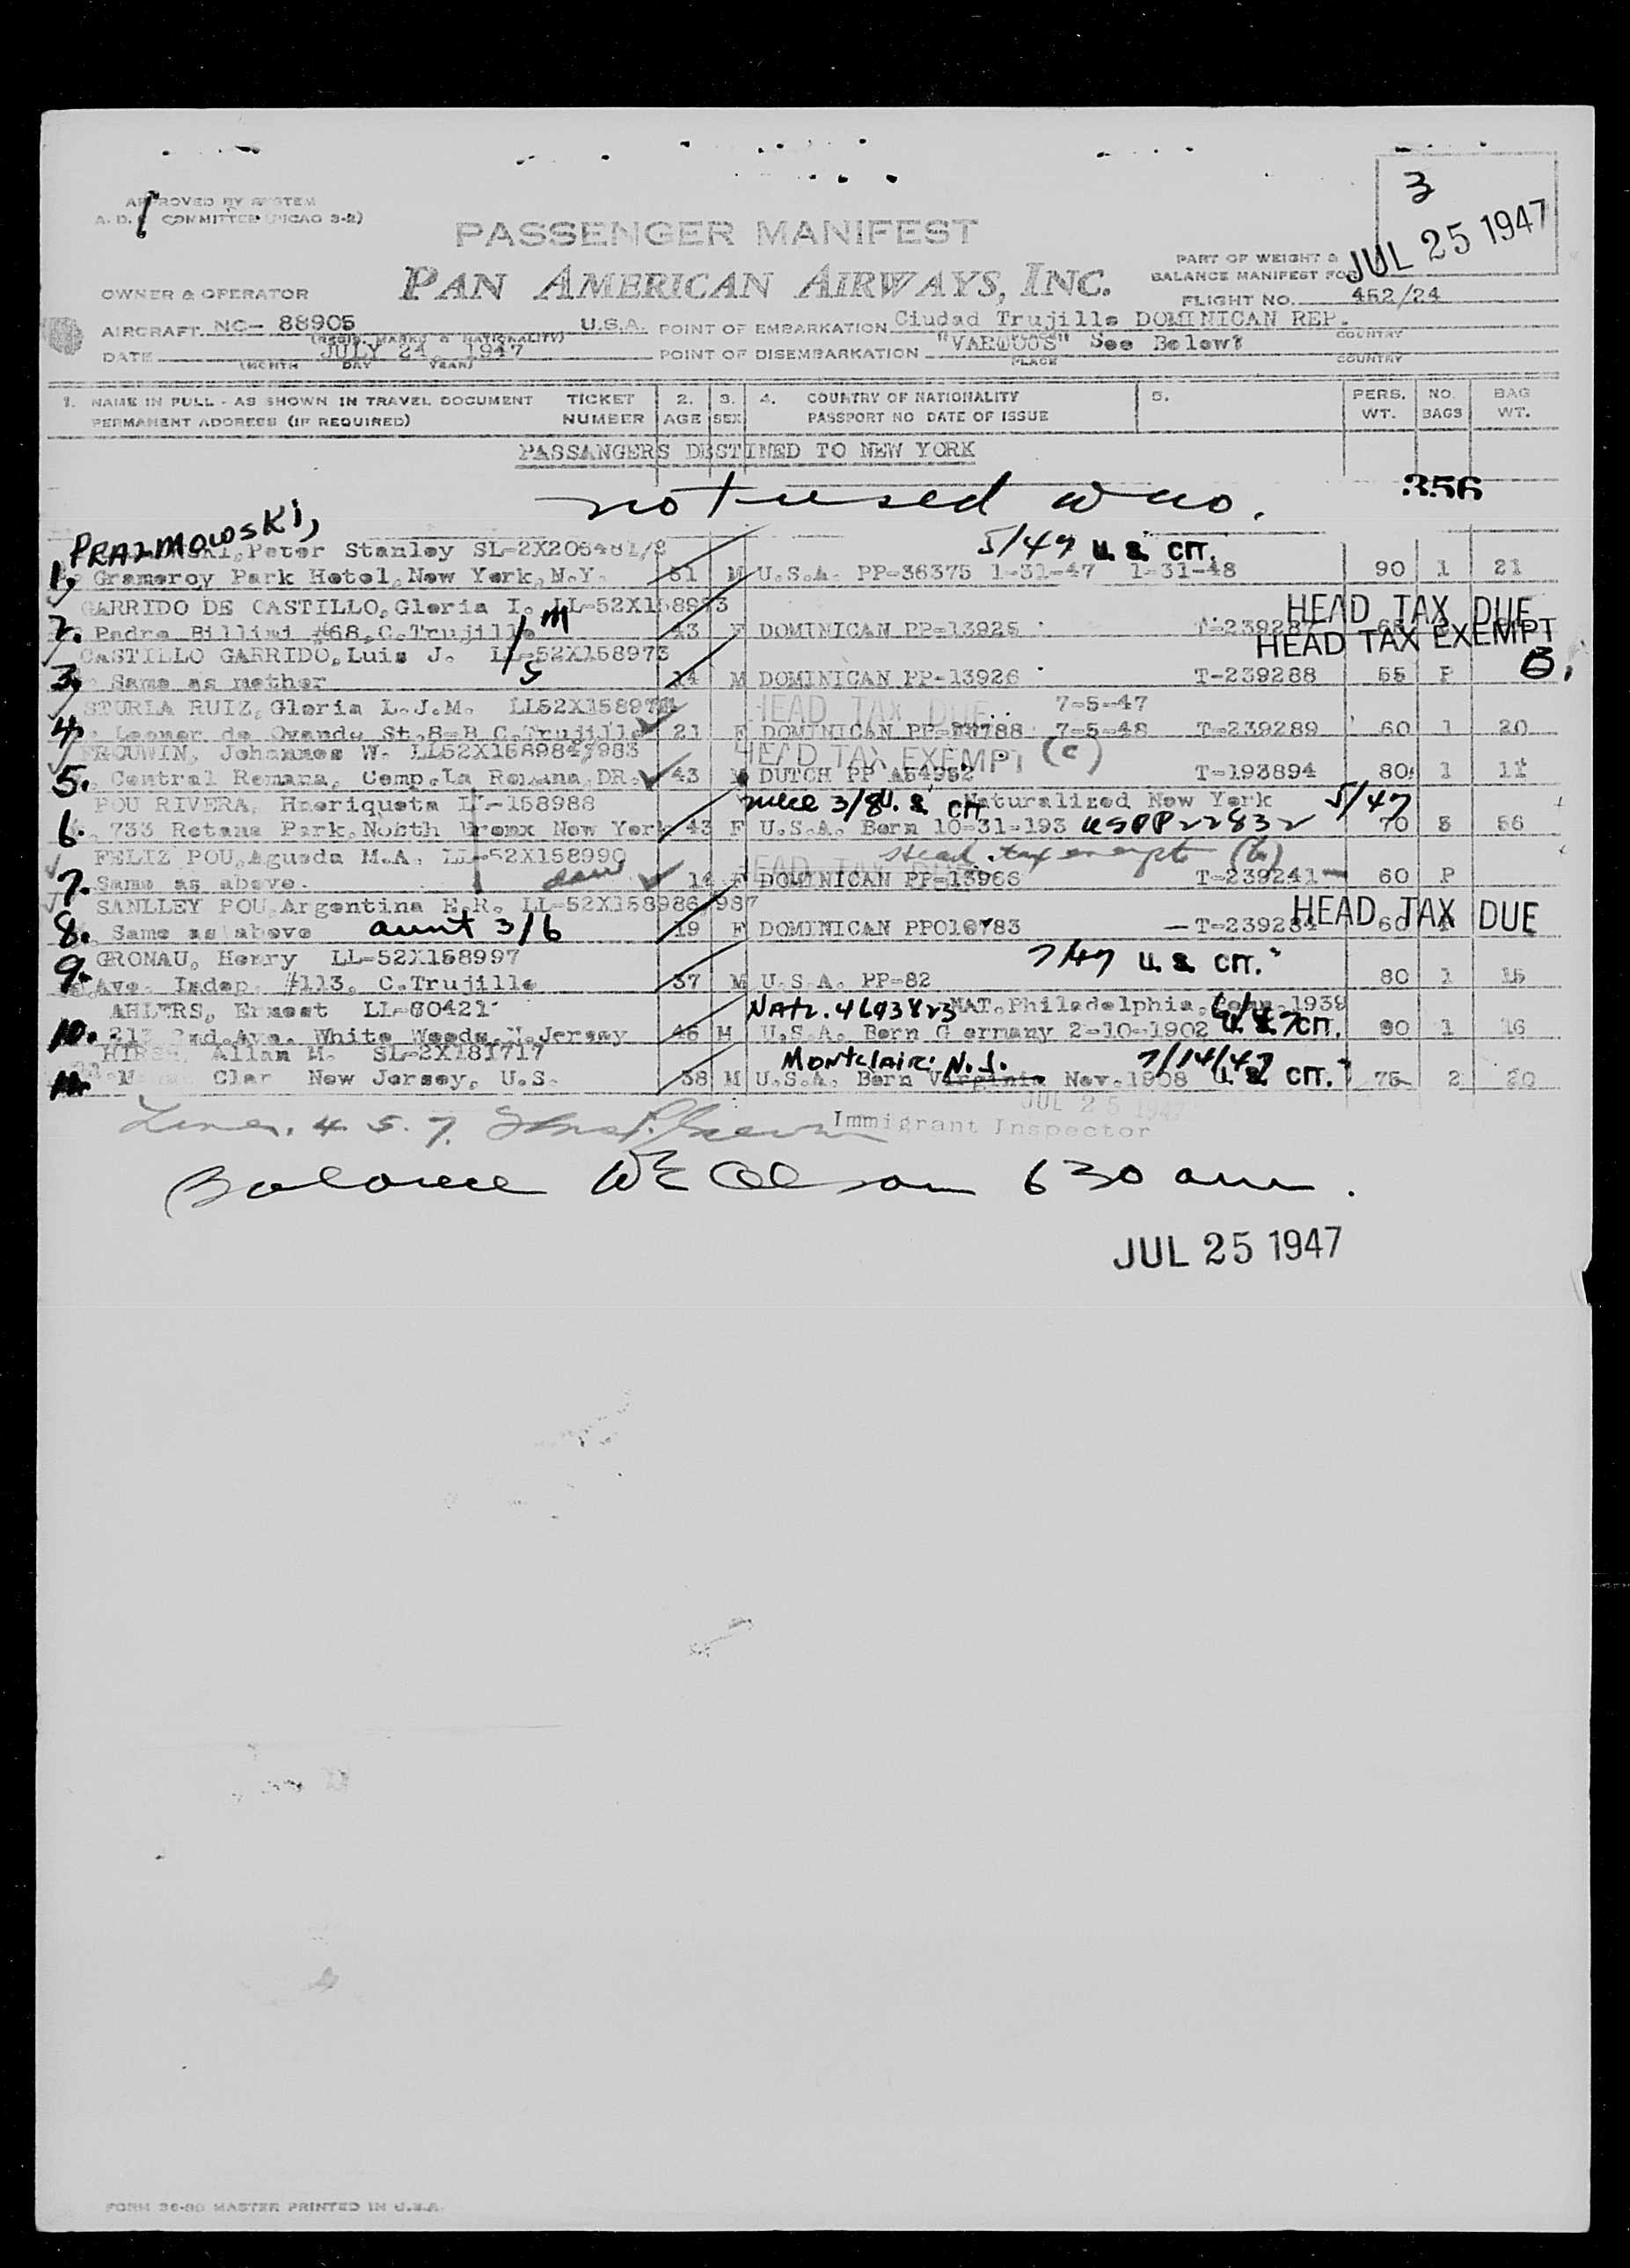 APPROVED BY SYSTEM
A. D. COMMITTEE (NCAO 3-2)
3
JUL 25 1947
PASSENGER MANIFEST
PAN AMERICAN AIRWAYS, INC.
PART OF WEIGHT &
BALANCE MANIFEST FOR
FLIGHT NO. 452/24
OWNER & OPERATOR
AIRCRAFT NC- 88905 U.S.A. POINT OF EMBARKATION Ciudad Trujillo DOMINICAN REP.
(REGIS. MARKS & NATIONALITY) COUNTRY
DATE JULY 24, 1947 POINT OF DISEMBARKATION "VARIOUS" See Below
(MONTH DAY YEAR) PLACE COUNTRY
1. NAME IN FULL - AS SHOWN IN TRAVEL DOCUMENT TICKET 2. 3. 4. COUNTRY OF NATIONALITY 5. PERS. NO. BAG
PERMANENT ADDRESS (IF REQUIRED) NUMBER AGE SEX PASSPORT NO DATE OF ISSUE WT. BAGS WT.
PASSANGERS DESTINED TO NEW YORK
not used
356
PRAZMOWSKI,
Peter Stanley SL-2X206481/2 5/47 U.S. CIT.
1. Gramercy Park Hotel, New York, N.Y. 51 M U.S.A. PP-36375 1-31-47 1-31-48 90 1 21
GARRIDO DE CASTILLO, Gloria I. LL-52X158973 HEAD TAX DUE
2. Padre Billini #68, C.Trujillo M 43 F DOMINICAN PP-13925 T-239287
HEAD TAX EXEMPT
CASTILLO GARRIDO, Luis J. LL-52X158973
3. Same as mother 14 M DOMINICAN PP-13926 T-239288 55 P
STURLA RUIZ, Gloria L.J.M. HEAD TAX DUE 7-5-47
4. Leonor de Ovando St. 8-B C.Trujillo 21 F DOMINICAN 7-5-48 T-239289 60 1 20
FROUWIN, Johannes W. LL52X158984/983 HEAD TAX EXEMPT (c)
5. Central Romana, Comp. La Romana, DR. 43 M DUTCH PP A54952 T-193894 80 1 11
POU RIVERA, Henriqueta LL-158988 niece 3/8 U.S. CIT Naturalized New York 5/47
6. 733 Retana Park, North Bronx New York 43 F U.S.A. Born 10-31-193 USPP22832 70 3 56
FELIZ POU, Aguada M.A. LL-52X158990 Head tax exempt (b)
7. Same as above. 14 F DOMINICAN PP-13966 T-239241 60 P
SANLLEY POU, Argentina E.R. LL-52X158986/987 HEAD TAX DUE
8. Same as above aunt 3/6 19 F DOMINICAN PPO16783 T-239234 60
GRONAU, Henry LL-52X158997 7/47 U.S. CIT.
9. Ave. Indep. #113, C.Trujillo 37 M U.S.A. PP-82 80 1 15
AHLERS, Ernest LL-80421 Natz. 4693823 NAT. Philadelphia, 1939
10. 213 2nd. Ave. White Woods, N. Jersey 45 M U.S.A. Born Germany 2-10-1902 U.S. CIT. 90 1 16
Allan M. SL-2X181717 Montclair N.J. 7/14/47
Clar New Jersey, U.S. 38 M U.S.A. Born Virginia Nov. 1908 U.S. CIT. 75 2 20
JUL 25 1947
Lines. 4 5. 7. Immigrant Inspector
Balance 630 am.
JUL 25 1947
FORM 36-00 MASTER PRINTED IN U.S.A.